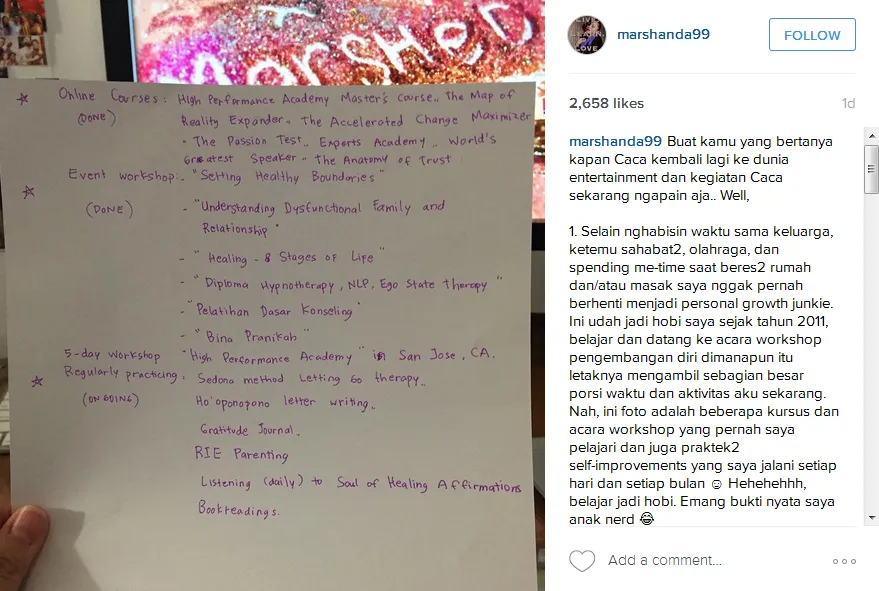 MARSHED
☆ Online Courses : High Performance Academy Master's Course.. The Map of
(DONE) Reality Expander.. The Accelerated Change Maximizer
· The Passion Test.. Experts Academy .. World's
Greatest Speaker.. The Anatomy of Trust
Event workshop:- "Setting Healthy Boundaries"
☆
(DONE) - "Understanding Dysfunctional Family and
Relationship"
- "Healing - 8 Stages of Life"
- "Diploma Hypnotherapy, NLP, Ego State Therapy"
- "Pelatihan Dasar Konseling"
- "Bina Pranikah"
5-day workshop "High Performance Academy" in San Jose, CA.
☆ Regularly practicing : Sedona method Letting Go therapy..
(ON GOING) Ho'oponopono letter writing..
Gratitude Journal..
RIE Parenting
Listening (daily) to Soul of Healing Affirmations
Bookreadings.
LIVE
LEARN
LOVE
marshanda99
FOLLOW
2,658 likes 1d
marshanda99 Buat kamu yang bertanya
kapan Caca kembali lagi ke dunia
entertainment dan kegiatan Caca
sekarang ngapain aja.. Well,
1. Selain nghabisin waktu sama keluarga,
ketemu sahabat2, olahraga, dan
spending me-time saat beres2 rumah
dan/atau masak saya nggak pernah
berhenti menjadi personal growth junkie.
Ini udah jadi hobi saya sejak tahun 2011,
belajar dan datang ke acara workshop
pengembangan diri dimanapun itu
letaknya mengambil sebagian besar
porsi waktu dan aktivitas aku sekarang.
Nah, ini foto adalah beberapa kursus dan
acara workshop yang pernah saya
pelajari dan juga praktek2
self-improvements yang saya jalani setiap
hari dan setiap bulan ☺ Hehehehhh,
belajar jadi hobi. Emang bukti nyata saya
anak nerd 😂
Add a comment...